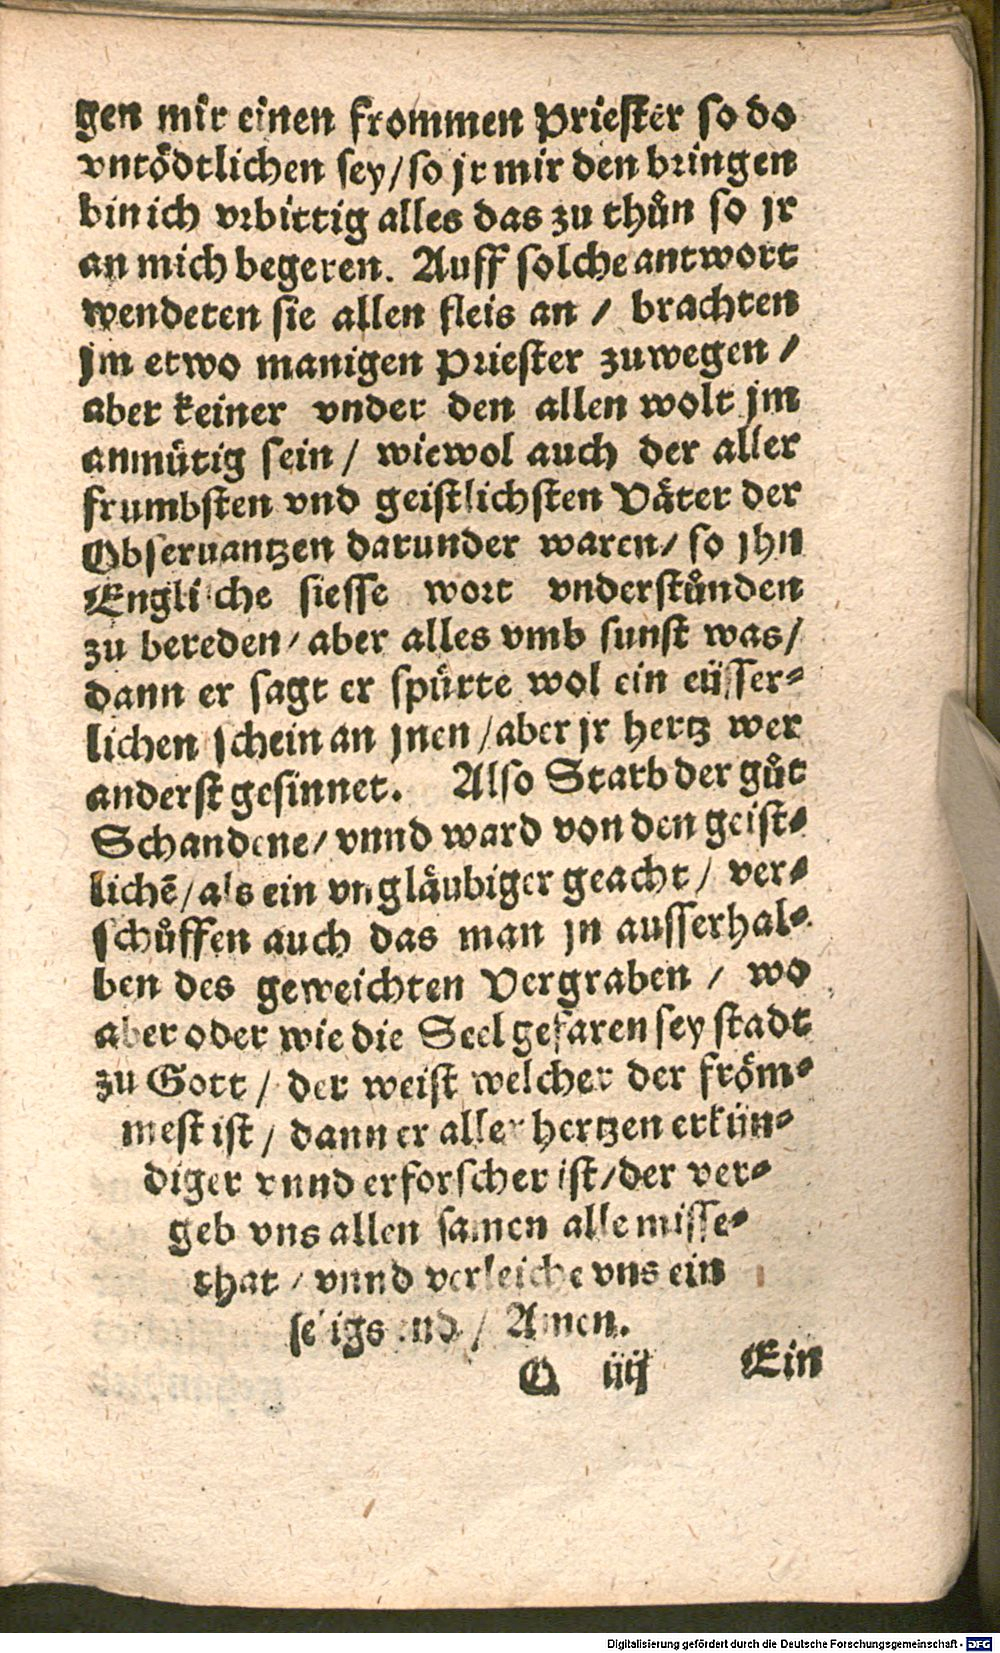 gen mir einen frommen Priester so do
vntödtlichen sey/so jr mir den bringen
bin ich vrbittig alles das zu thůn so jr
an mich begeren. Auff solche antwort
wendeten sie allen fleis an / brachten
jm etwo manigen Priester zuwegen /
aber keiner vnder den allen wolt jm
anmütig sein / wiewol auch der aller
frumbsten vnd geistlichsten Väter der
Obseruantzen darunder waren/ so jhn
Englische siesse wort vnderstůnden
zu bereden/ aber alles vmb sunst was/
dann er sagt er spürte wol ein eüsser-
lichen schein an jnen /aber jr hertz wer
anderst gesinnet. Also Starb der gůt
Schandene/ vnnd ward von den geist-
lichē/als ein vngläubiger geacht / ver-
schůffen auch das man jn ausserhal-
ben des geweichten Vergraben / wo
aber oder wie die Seel gefaren sey stadt
zu Gott / der weist welcher der fröm-
mest ist / dann er aller hertzen erkün-
diger vnnd erforscher ist/der ver-
geb vns allen samen alle misse-
that / vnnd verleiche vns ein
seligs end / Amen.
O iiij Ein
Digitalisierung gefördert durch die Deutsche Forschungsgemeinschaft - DFG